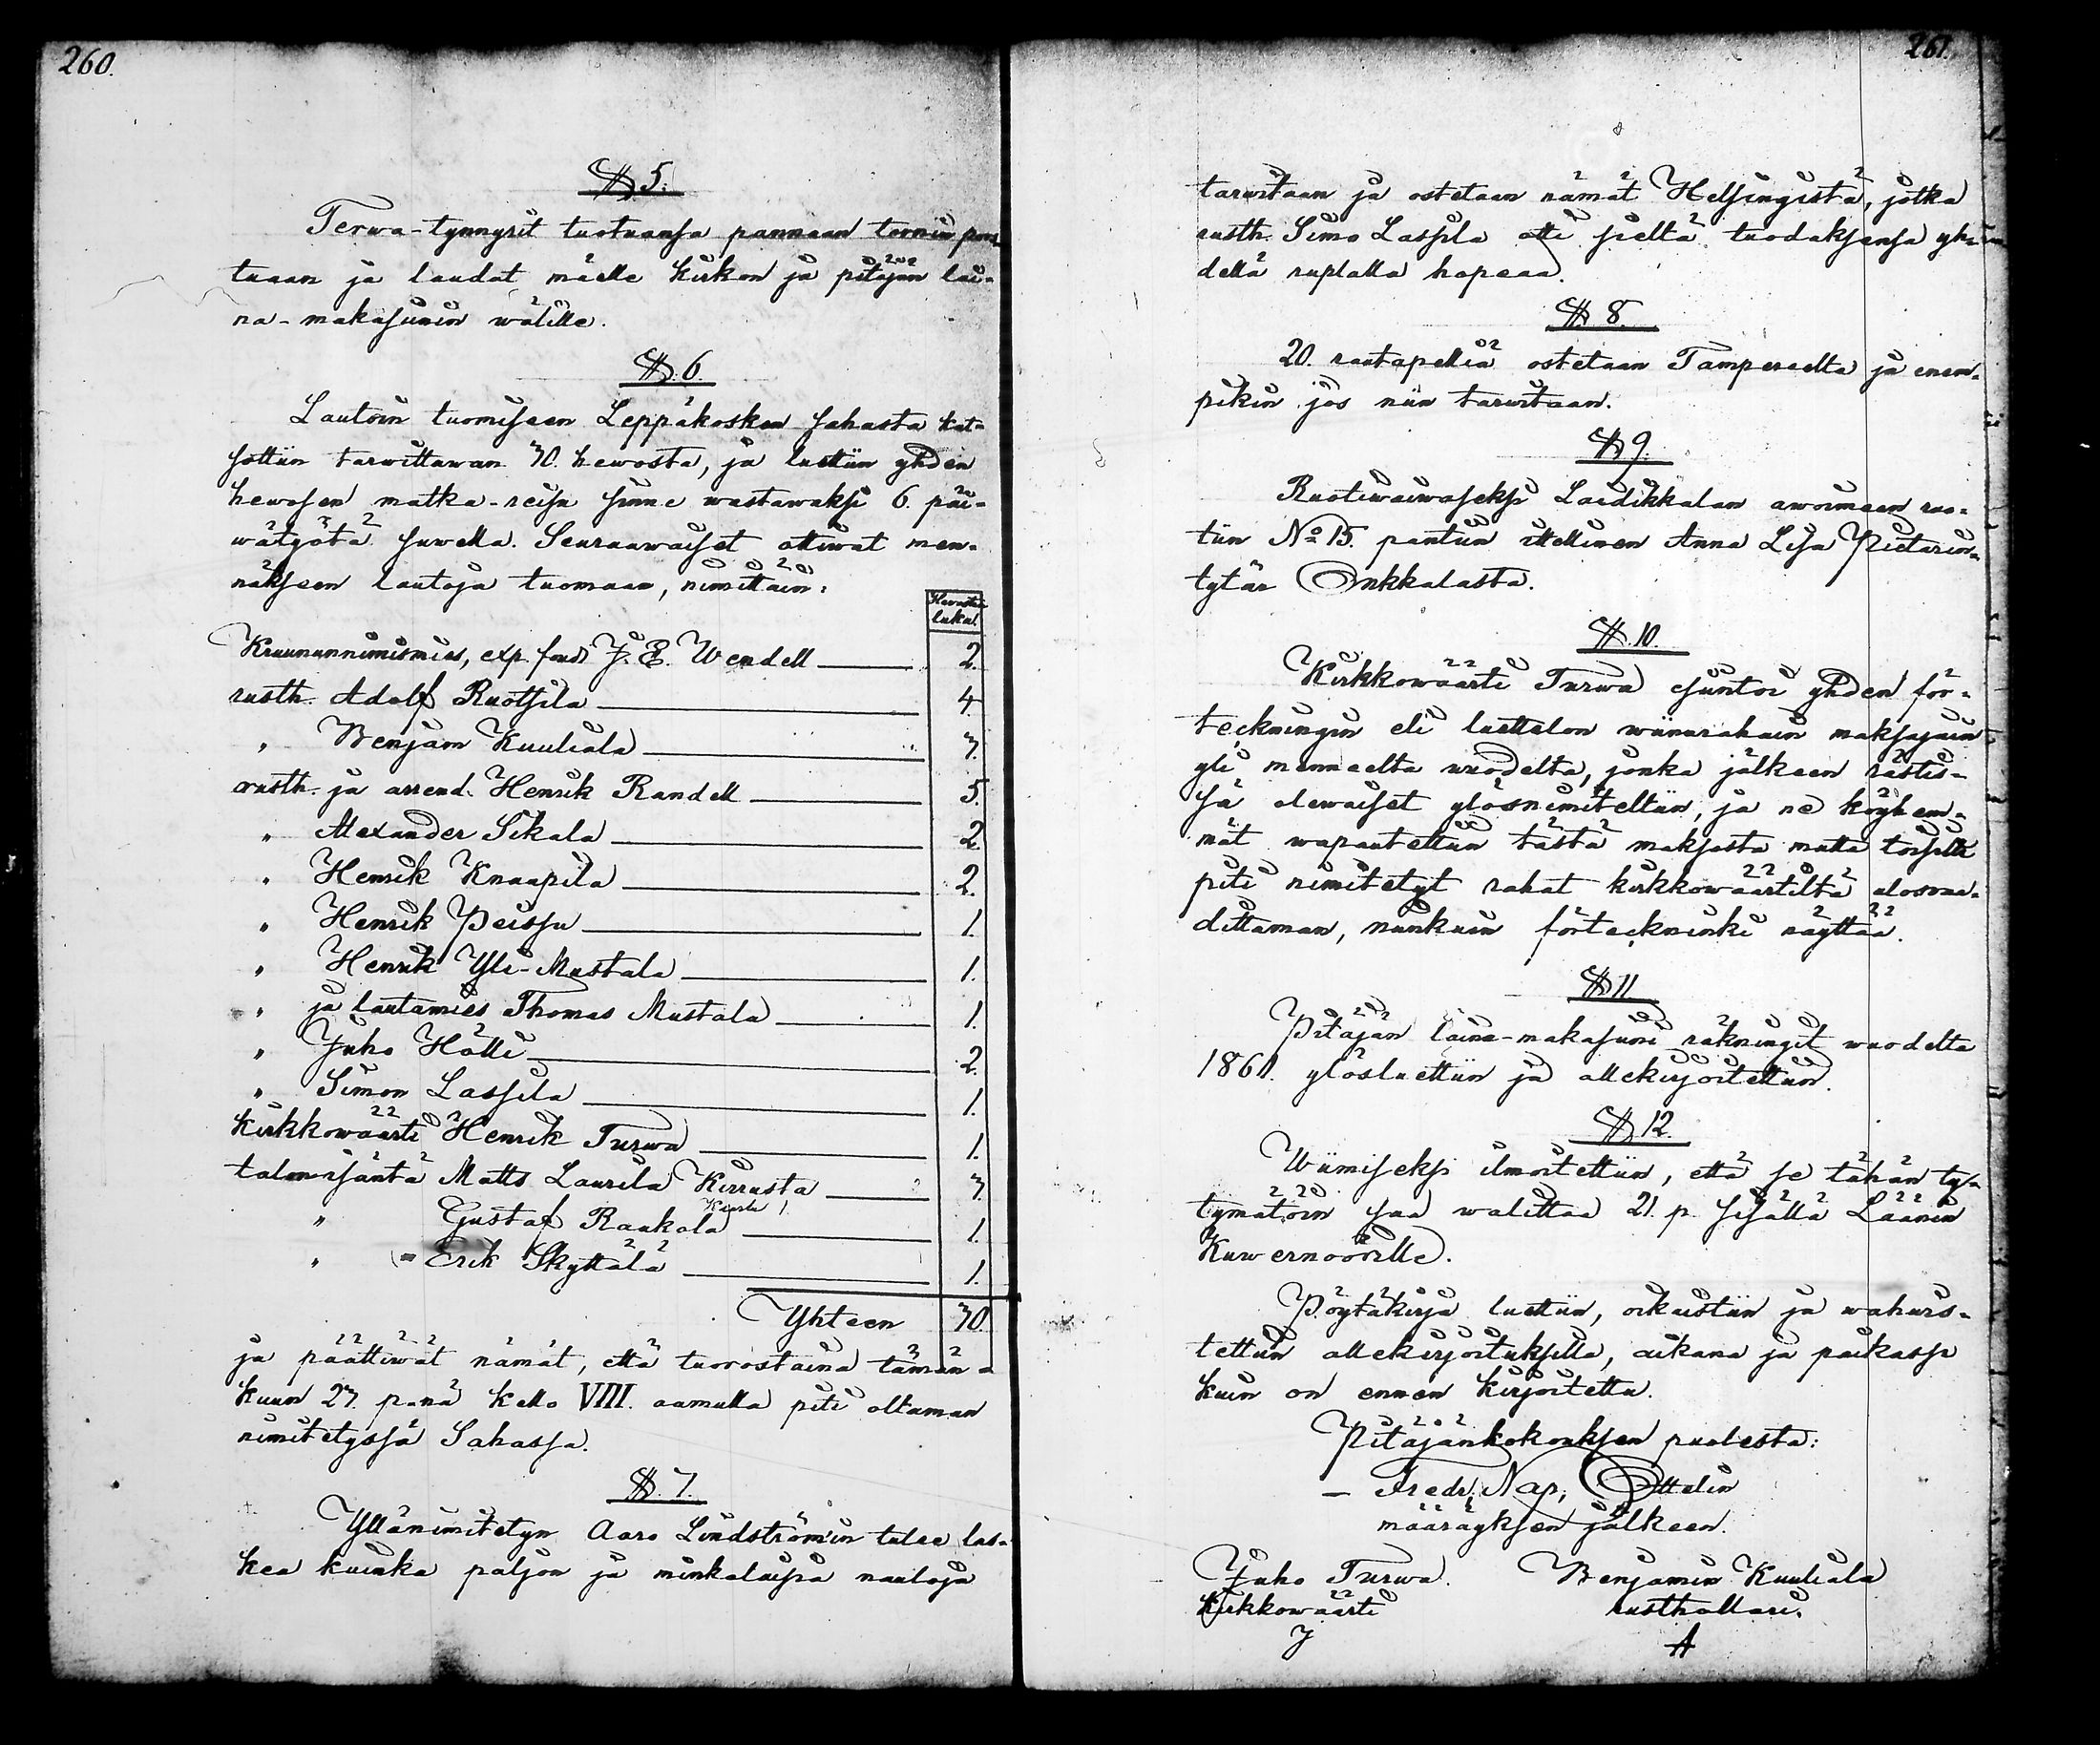 260.
§ 5.
Terwa-tynnyrit tuotuansa pannaan tornin por=
tuaan ja laudat mäelle kirkon ja pitäjän lai=
na-makasunin wälille.
§ 6.
Lautoin tuomiseen Leppäkosken sahasta kat=
sottiin tarwittawan 30. hewosta, ja luettiin yhden
hewosen matka-reisu sinne wastawaksi 6. päi=
wätyötä suwella. Seuraawaiset ottiwat men=
näkseen lautoja tuomaan, nimittäin:
Hewoste
lukul.
Kruununnimismies, exp. fou J. E. Wendell 2.
rusth. Adolf Ruotsila 4.
" Benjam Kuuliala 3.
rusth. ja arrend. Henrik Randell 5.
" Alexander Sikala 2.
" Henrik Knaapila 2.
" Henrik Peissu 1.
" Henrik Yli-Mustala 1.
" ja lautamies Thomas Mustala 1.
" Juho Hölli 2.
" Simon Lassila 1.
kirkkowäärti Henrik Turwa 1.
talonisäntä Matts Laurila Kirrusta 3
" Gustaf Raukola 1.
" = Erik Skyttälä 1.
Yhteen 30.
ja päättiwät nämät, että tuorostaina tämän
kuun 27. p:nä kello VIII. aamulla piti oltaman
nimitetyssä Sahassa.
§. 7.
Yllänimitetyn Aaro Lindström'in tulee las=
kea kuinka paljon ja minkalaisia nauloja
261.
tarwitaan ja ostetaan nämät Helsingistä, jotka
rusth. Simo Lassila otti sieltä tuodaksensa yh=
dellä ruplalla hopeaa.
§. 8.
20. rautapelliä ostetaan Tampereelta ja enem=
pikin jos niin tarwitaan.
§ 9.
Ruotiwaiwaseksi Laidikkalan awoimeen ruo=
tiin No 15. pantiin itsellinen Anna Lisa Pietarin=
tytär Onkkalasta.
§. 10.
Kirkkowäärti Turwa esiintoi yhden för=
teckningin eli luettelon wiinurahain maksajain
yli menneelta wuodelta, jonka jälkeen rästis=
sä olewaiset ylösnimitettiin, ja ne köyhem=
mät wapautettiin tästä maksosta mutta toisilta
piti nimitetyt rahat kirkkowäärtiltä uloswaa=
dittaman, niinkuin förteckninki näyttää.
§ 11
Pitäjän laina-makasuni räkningit wuodelta
1861. ylösluettiin ja allekirjoitettiin.
§ 12.
Wiimiseksi ilmoitettiin, että se tähän ty=
tymätöin saa walittaa 21. p. sisällä Läänin
Kuwernöörille.
Pöytäkirja luettiin, oikaistiin ja wahwis=
tettiin allekirjoituksilla, aikana ja paikassa
kuin on ennen kirjoitettu.
Pitäjänkokouksen puolesta:
Fredr. Nap. Ottelin
määräyksen jälkeen.
Juho Turwa. Benjamin Kuuliala
Kirkkowäärti rusthollari.